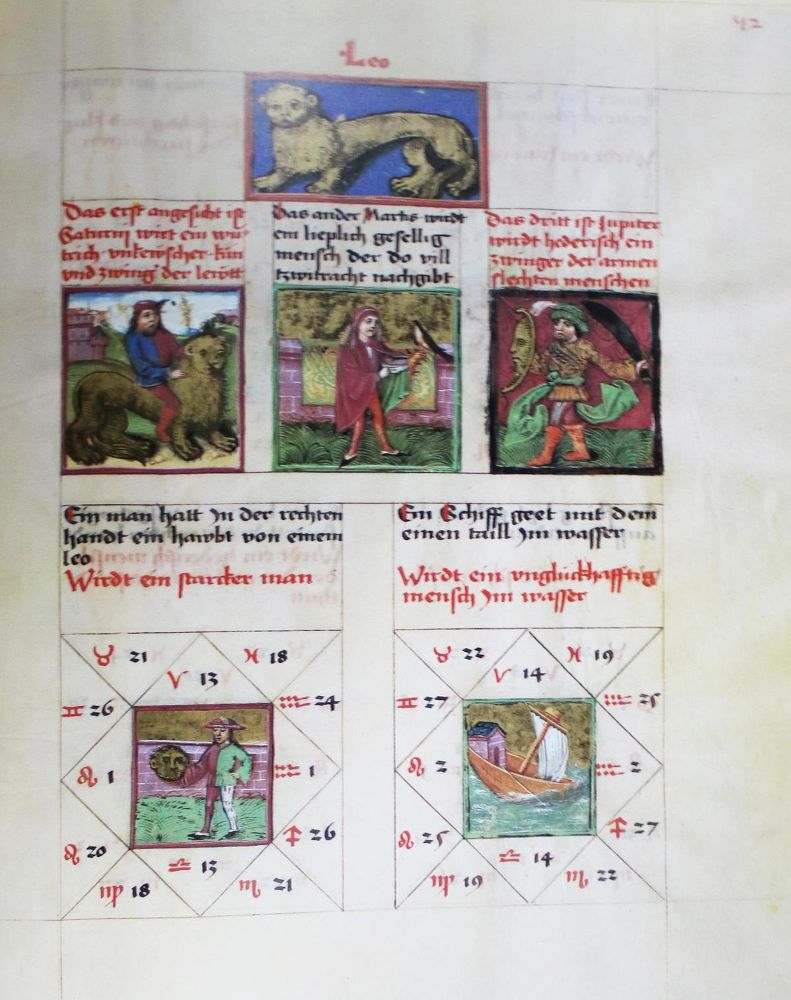 42
Leo
Das erst angesicht ist
Saturnj wirt ein wu-
trich unkewscher kun
vnd zwing der lewtt
Das ander Martis wirdt
ein lieplich gesellig
mensch der do vill
tzwitracht nachgibt
Das dritt ist Jupiter
wirdt hederisch ein
zwinger der armen
slechten menschen
Ein man halt Jn der rechten
handt ein hawbt von einem
leo
Wirdt ein starcker man
Ein Schiff geet mit dem
einen taill Jm wasser
Wirdt ein vngluckhafftig
mensch Jm wasser
♉ 21
♈ 13
♓ 18
♊ 26
♒ 24
♌ 1
♒ 1
♌ 20
♐ 26
♍ 18
♎ 13
♏ 21
♉ 22
♈ 14
♓ 19
♊ 27
♒ 25
♌ 2
♒ 2
♌ 25
♐ 27
♍ 19
♎ 14
♏ 22